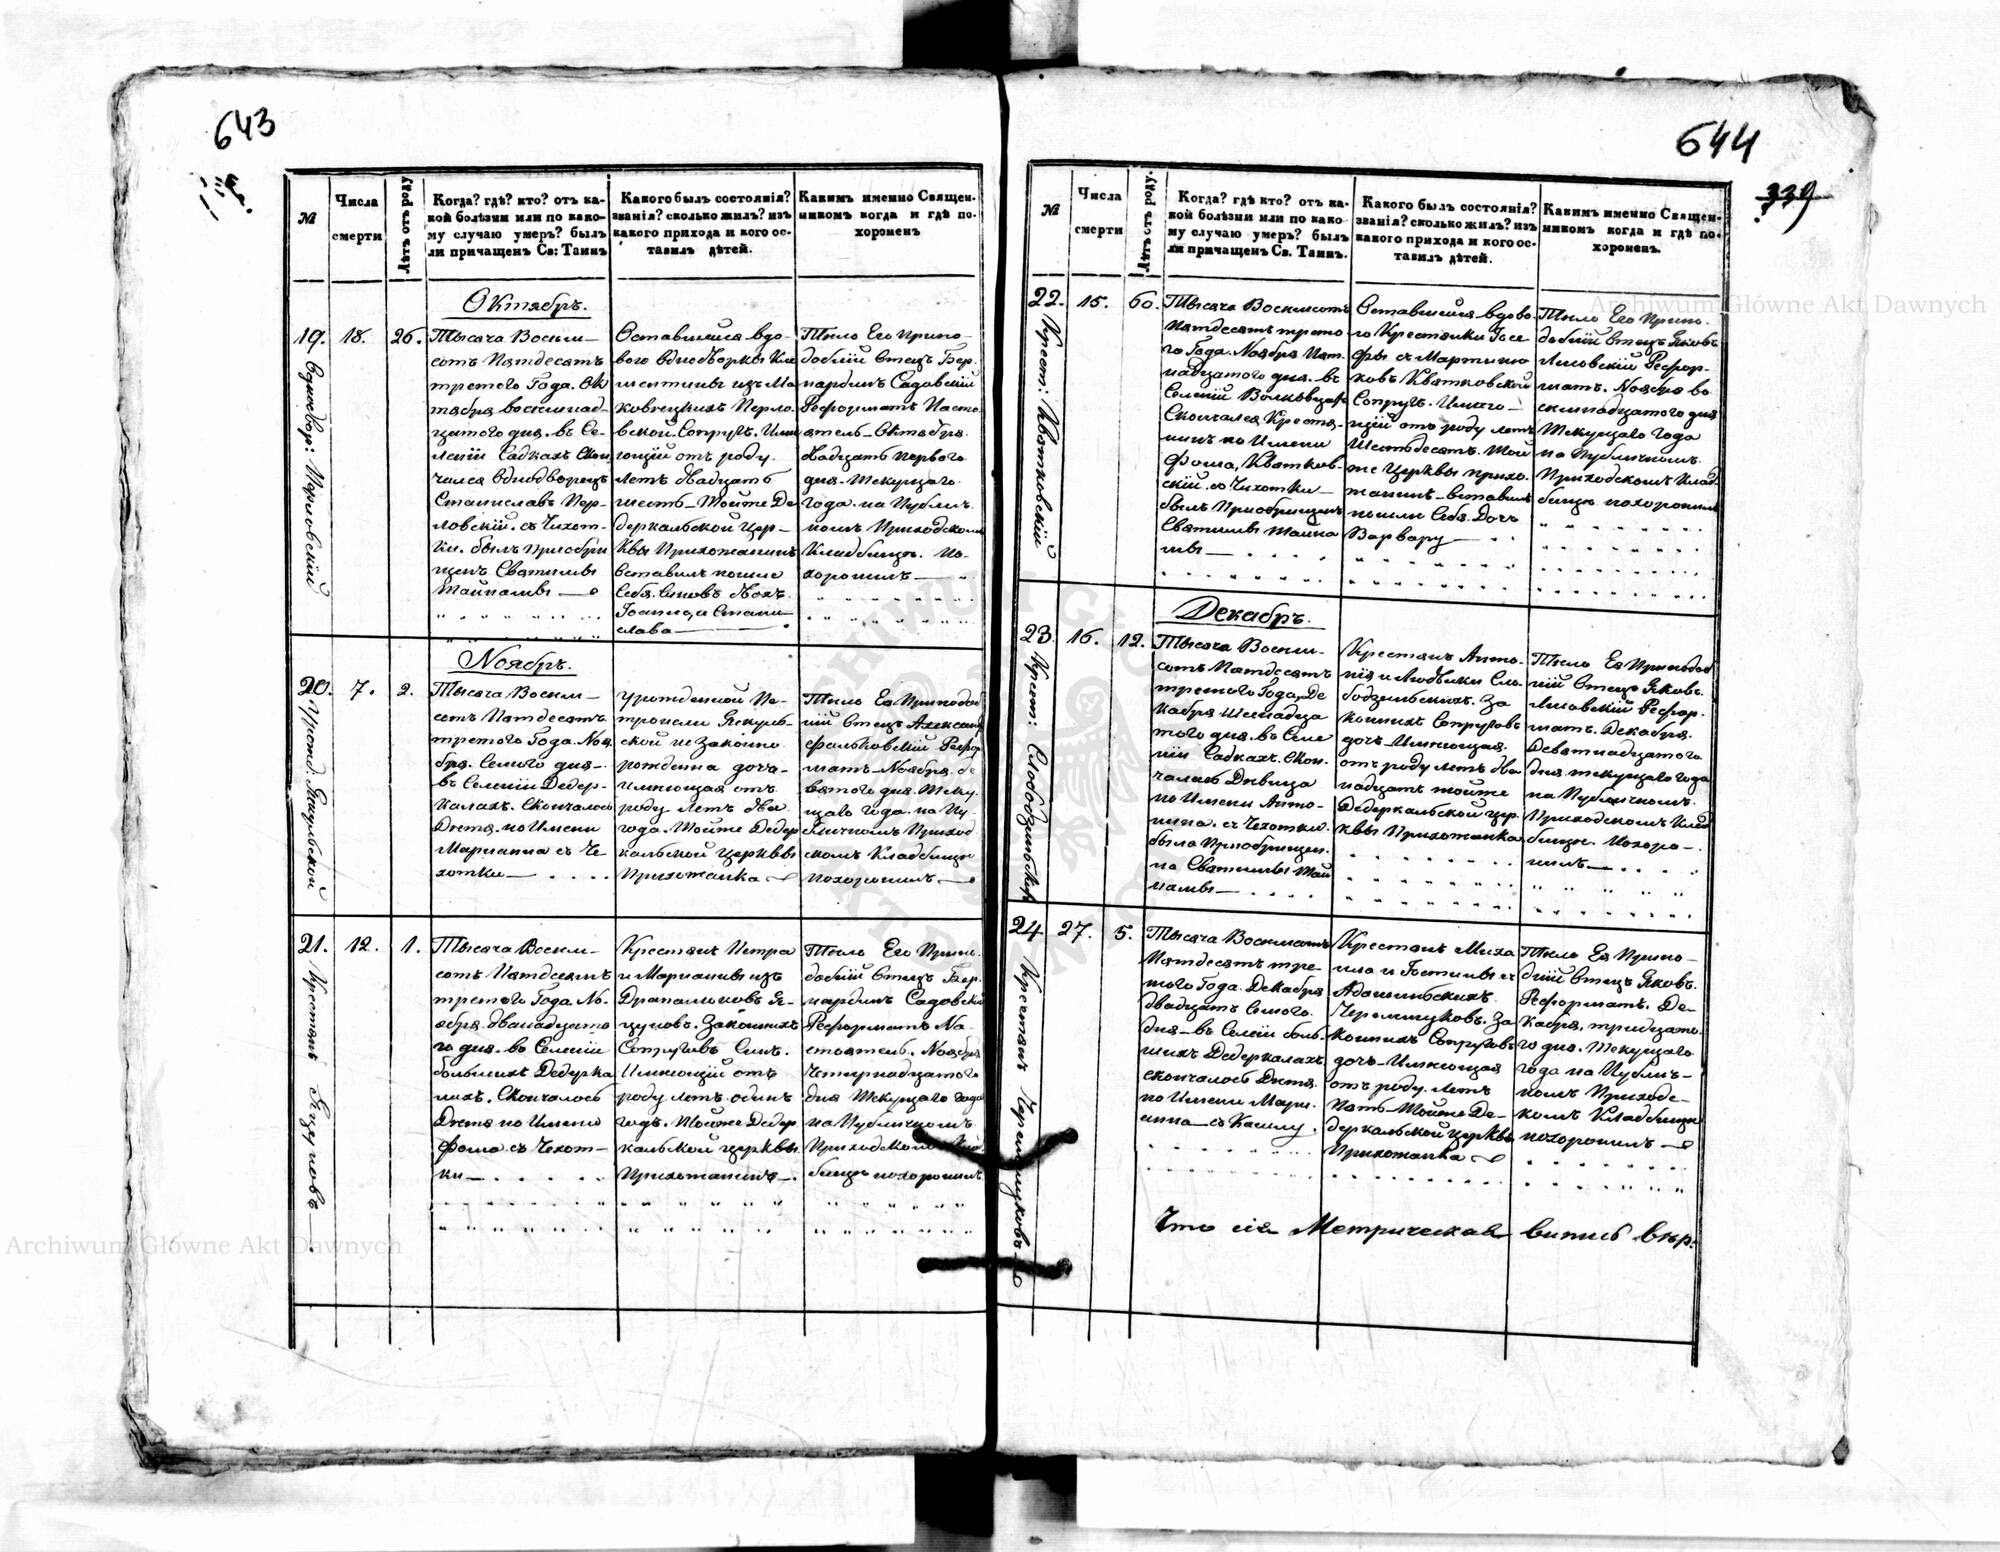 643
№
Числа
смерти
Лѣтъ отъ роду
Когда? гдѣ? кто? отъ ка-
кой болѣзни или по како-
му случаю умеръ? былъ
ли причащенъ Св: Таинъ
Какого былъ состоянія?
званія? сколько жилъ? изъ
какого прихода и кого ос-
тавилъ дѣтей.
Какимъ именно Священ-
никомъ когда и гдѣ по-
хороненъ
Октябрь.
19.
18.
26.
Тысяча Восьм-
сотъ Пятдесятъ
третего Года. Ок
тября восемнад-
цатого дня. въ Се-
леніи Садкахъ Скон
чался однодворецъ
Станиславъ Пер-
ловскій. съ Чехот-
ки. былъ приобри
щенъ Святыми
Тайнами
Оставшейся вдо-
вого однодворки Кле
ментины изъ Ма
ковецкихъ Перло.
вской. Супругъ. Име
ющій отъ роду.
Летъ двадцать
шесть - Тойже Де
деркальской Цер-
квы Прихожанинъ
Оставилъ после
Себя. Синовъ двохъ.
Іоанна, и Стани-
слава
Тѣло Его Припо-
добній Отецъ Бер.
нардинъ Садовскій
Реформатъ Насто
ятель - Октября.
двадцать первого
дня - текущаго.
года. на Публич.
номъ Приходском
Кладбищѣ. по-
хоронилъ
Однодвор: Перловскій
Ноябрь.
20.
7.
2.
Тысяча Восьм-
сотъ Пятдесятъ
третого Года. Ноя
бря. Семого дня-
въ Селеніи Дедер-
калахъ. Скончалось
Дитя. по Имени
Марианна съ Че-
хотки
урожденной Пе-
тронели Якуль-
ской незаконно
рожденна дочь-
имеющая отъ
роду Летъ два
года. Тойже Дедер
кальской Церквы
Прихожанка
Тѣло Ея Приподоб
ній Отецъ Александ
Фальковскій Рефор
матъ - Ноября. де
вятого дня. Теку-
щаго года. на Пу-
бличномъ Приход
скомъ Кладбищѣ
похоронилъ
Урожд. Якульской
21.
12.
1.
Тысяча Восьм-
сотъ Пятдесятъ
третого Года. Но-
ября. дванадцато
го дня. въ Селеніи
большихъ Дедерка
лахъ. Скончалось
Дитя по Имени
Фома съ Чехот-
ки
Крестянъ Петра
и Марианны изъ
Драпалюковъ Я-
цуковъ. Законныхъ
Супруговъ Синъ.
Имеющій отъ
роду летъ одинъ
годъ. Тойже Дедер
кальской церквы
Прихожанинъ
Тѣло Его Припо
добній Отецъ Бер.
нардинъ Садовскій
Реформатъ На-
стоятель. Ноября
Четырнадцатого
дня Текущаго года
на Публичномъ
Приходскомъ Клад.
бищѣ похоронилъ.
Крестянъ Яцуковъ
644
339
№
Числа
смерти
Лѣтъ отъ роду.
Когда? гдѣ? кто? отъ ка-
кой болѣзни или по како-
му случаю умеръ? былъ
ли причащенъ Св. Таинъ.
Какого былъ состоянія?
званія? сколько жилъ? изъ
какого прихода и кого ос-
тавилъ дѣтей.
Какимъ именно Священ-
никомъ когда и гдѣ по-
хороненъ.
22.
15.
60.
Тысяча Восьмсотъ
Пятдесятъ трето-
го Года. Ноября Пят.
надцатого дня. въ
Селеніи
Скончался Крестя-
нинъ по Имени
Фома, Квятков-
скій. съ Чехотки
былъ Приобрищенъ
Святыми Тайна
мы
Оставшейся вдово
го Крестянки Іосе
фы съ Мартыню
ковъ Квятковской
Супругъ. Имею-
щій отъ роду летъ
Шестьдесятъ. Той
же Церквы прихо.
жанинъ - оставилъ
после Себя. Дочь
Варвару
Тѣло Его Припо.
добній Отецъ Яковъ
Лисовскій Рефор-
матъ. Ноября во
семнадцатого дня
Текущаго года
на Публичномъ.
Приходскомъ Клад
бищѣ похоронилъ
Крест: Квятковскій
Декабрь.
23.
16.
12.
Тысяча Восьм-
сотъ Пятдесятъ
третого Года, Де
кабря Шеснадца
того дня. въ Селе
ніи Садкахъ. Скон-
чалась Девица
по Имени Анто-
нина. съ Чехотки.
была Приобрищен.
на Святыми Тай
нами
Крестянъ Анто-
нія и Людвики Сло-
бодзинскихъ. За
конныхъ Супруговъ
дочь Имеющая.
отъ роду летъ два
надцать тойже
Дедеркальской цер.
квы Прихожанка
Тѣло Ея Приподоб
ній Отецъ Яковъ.
Лисовскій Рефор.
матъ. Декабря.
Девятнадцатого
дня текущаго года
на Публичномъ.
Приходскомъ Клад
бищѣ. Похоро-
нилъ
Крест: Слободзинскихъ
24
27.
5.
Тысяча Восьмсотъ
Пятдесятъ тре-
того Года. Декабря
двадцать Семого.
дня - въ Селеніи боль-
шихъ Дедеркалахъ
скончалось Дитя.
по Имени Мари-
анна - съ Кашлу.
Крестянъ Миха
ила и Юстины съ
Адамскихъ
Черемшуковъ. За
конныхъ Супруговъ
дочь - Имеющая
отъ роду. летъ
Пять - Тойже Де-
деркальской церквы
Прихожанка
Тѣло Ея Припо-
дній Отецъ Яковъ.
Реформатъ. Де-
кабря, тридцато.
го дня. Текущаго
года на Публич-
номъ Приходс-
комъ Кладбищѣ
похоронилъ
Крестянъ Черемшуковъ
Что сія Метрическая випись вѣр.
Archiwum Główne Akt Dawnych
Archiwum Główne Akt Dawnych